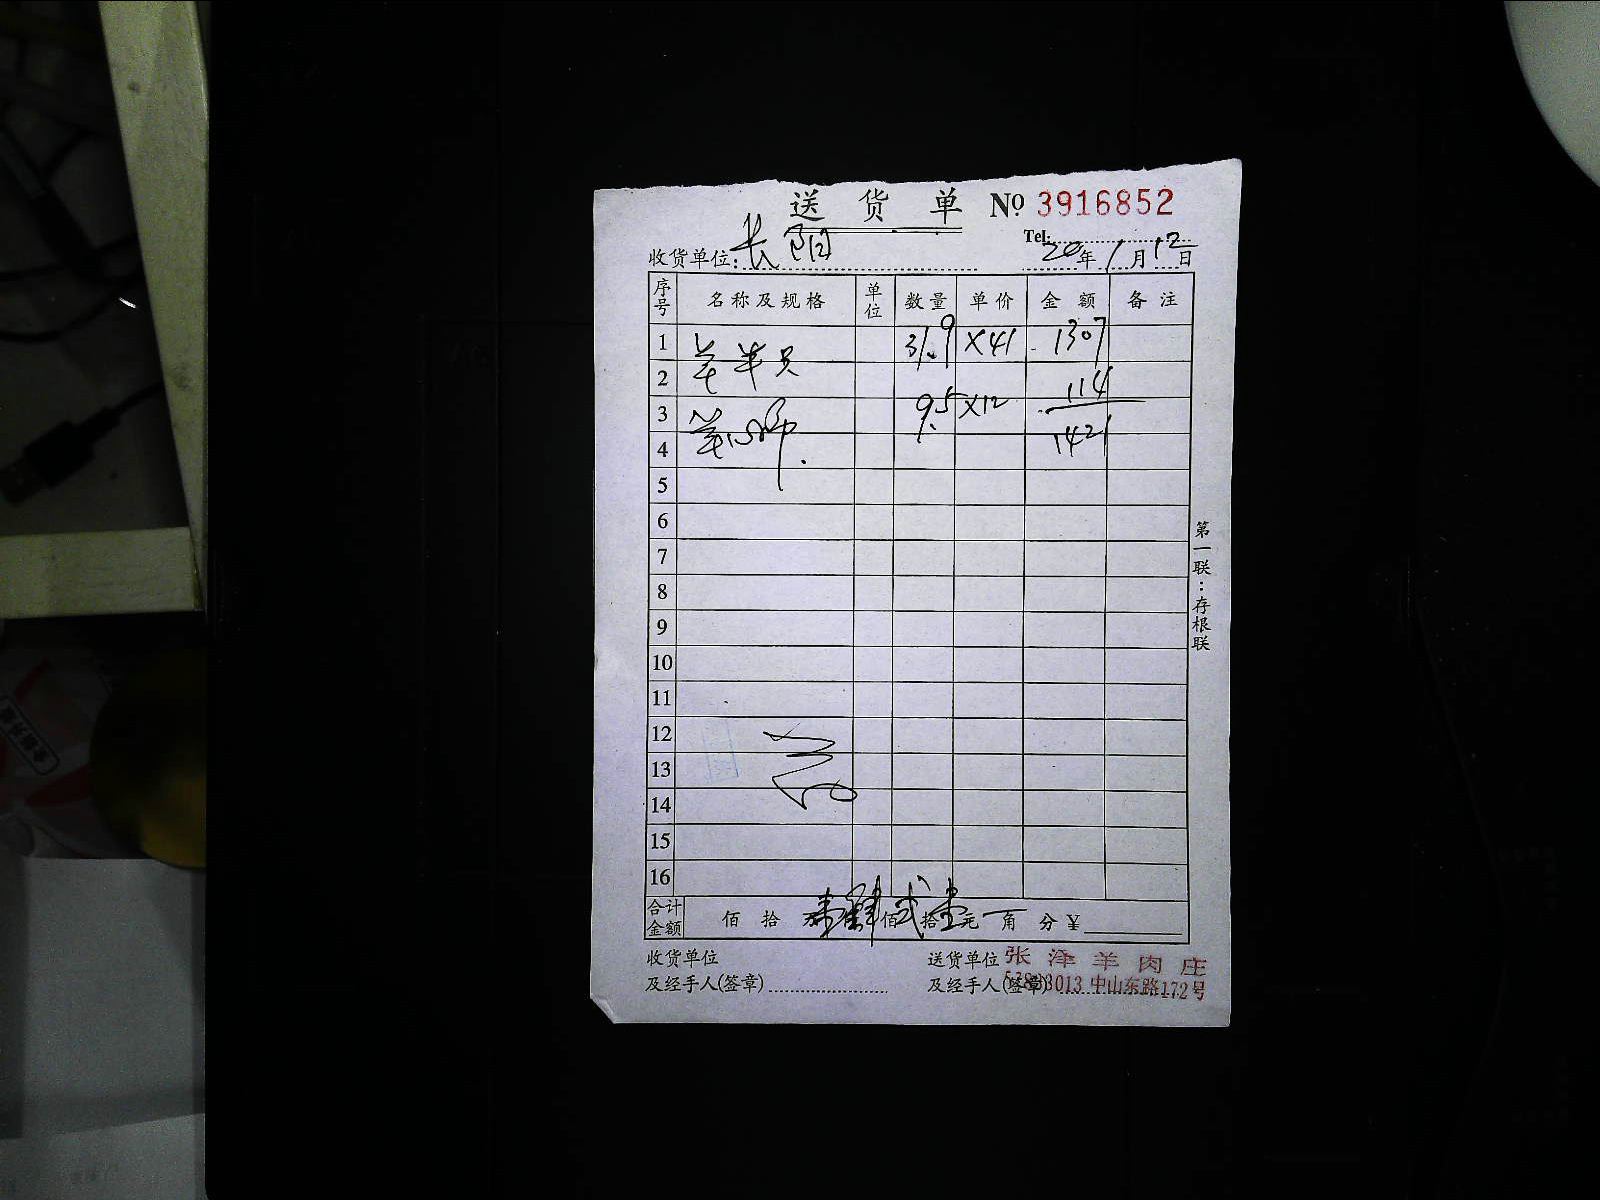 送货单 № 3916852
Tel:
收货单位: 长阳 20年1月12日
序号 名称及规格 单位 数量 单价 金额 备注
1 羊半只 31.9 ×41 1307
2 114
3 羊心肺 9.5 ×12
4 1421
5
6
7
8
9
10
11
12
13
14
15
16
合计金额 佰 拾 壹肆佰贰拾壹元 角 分 ¥
收货单位 送货单位 张泽羊肉庄
及经手人(签章) 及经手人(签章) 3013 中山东路172号
第一联:存根联